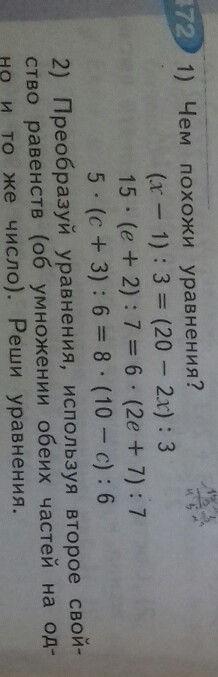 472 1) Чем похожи уравнения?
(x − 1) : 3 = (20 − 2x) : 3
15 · (e + 2) : 7 = 6 · (2e + 7) : 7
5 · (c + 3) : 6 = 8 · (10 − c) : 6
2) Преобразуй уравнения, используя второе свой-
ство равенств (об умножении обеих частей на од-
но и то же число). Реши уравнения.